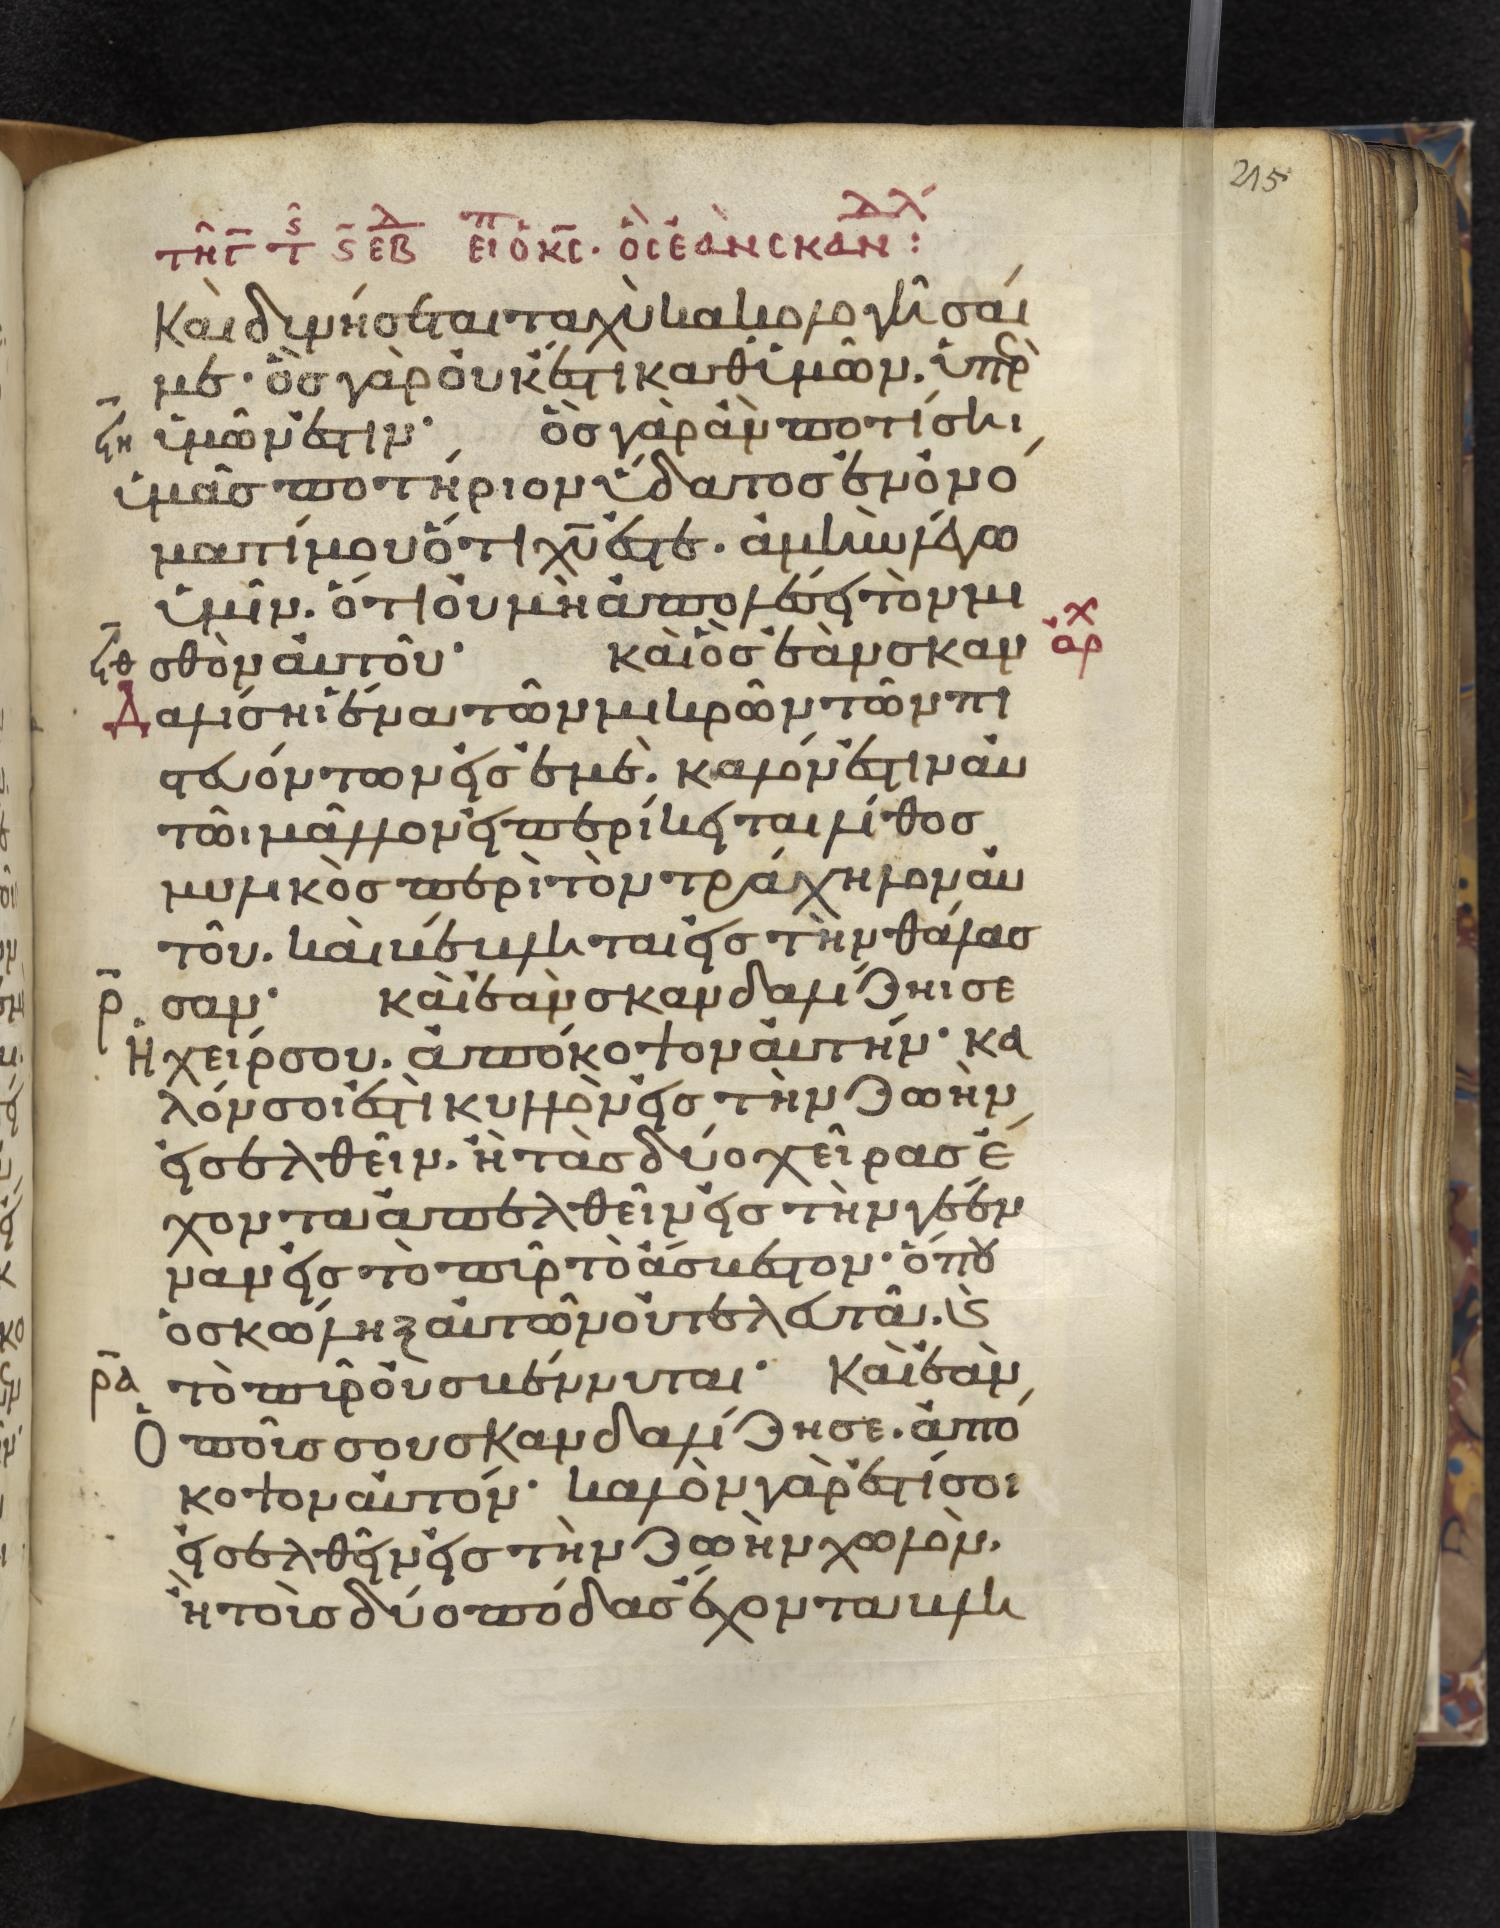 215
τῆ γ̄ τ ς̄ ἑβ εἰ ὁ κ̅ς̅· ὃς ἐὰν σκανδαλ:
Καὶ δυνήσεται ταχὺ κακολογῆσαί
με· ὃς γὰρ οὐκ ἔστι καθ' ἡμῶν. ὑπὲρ
ϟη ἡμῶν ἔστιν· ὃς γὰρ ἂν ποτίσῃ
ὑμᾶς ποτήριον ὕδατος ἐν ὀνό
ματί μου ὅτι χ̅υ̅ ἐστε. ἀμὴν λέγω
ὑμῖν. ὅτι οὐ μὴ ἀπολέσει τὸν μι
ϟθ σθὸν αὐτοῦ· καὶ ὃς ἐὰν σκαν ἀρχ
Δαλίσηι ἕνα τῶν μικρῶν τῶν πι
στευόντων εἰς ἐμέ. καλόν ἐστιν αὐ
τῶι μᾶλλον εἰ περίκειται λίθος
μυλικὸς περὶ τὸν τράχηλον αὐ
τοῦ. καὶ βέβληται εἰς τὴν θάλασ
ρ̄ σαν· καὶ ἐὰν σκανδαλίζηι σε
Ἡ χείρ σου. ἀπόκοψον αὐτήν· κα
λόν σοι ἐστὶ κυλλὸν εἰς τὴν ζωὴν
εἰσελθεῖν. ἢ τὰς δύο χεῖρας ἔ
χοντα ἀπελθεῖν εἰς τὴν γέεν
ναν εἰς τὸ πῦρ τὸ ἄσβεστον· ὅπου
ὁ σκώληξ αὐτῶν οὐ τελευτᾶ. κ̀
ρ̄α τὸ πῦρ οὐ σβέννυται· Καὶ ἐὰν
Ὁ ποῦς σου σκανδαλίζη σε. ἀπό
κοψον αὐτόν· καλὸν γὰρ ἐστί σοι
εἰσελθεῖν εἰς τὴν ζωὴν χωλὸν.
ἢ τοὺς δύο πόδας ἔχοντα βλη